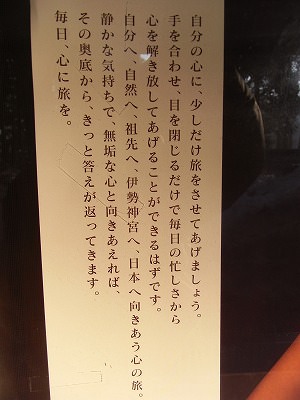 自分の心に、少しだけ旅をさせてあげましょう。
手を合わせ、目を閉じるだけで毎日の忙しさから
心を解き放してあげることができるはずです。
自分へ、自然へ、祖先へ、伊勢神宮へ、日本へ向きあう心の旅。
静かな気持ちで、無垢な心と向きあえれば、
その奥底から、きっと答えが返ってきます。
毎日、心に旅を。